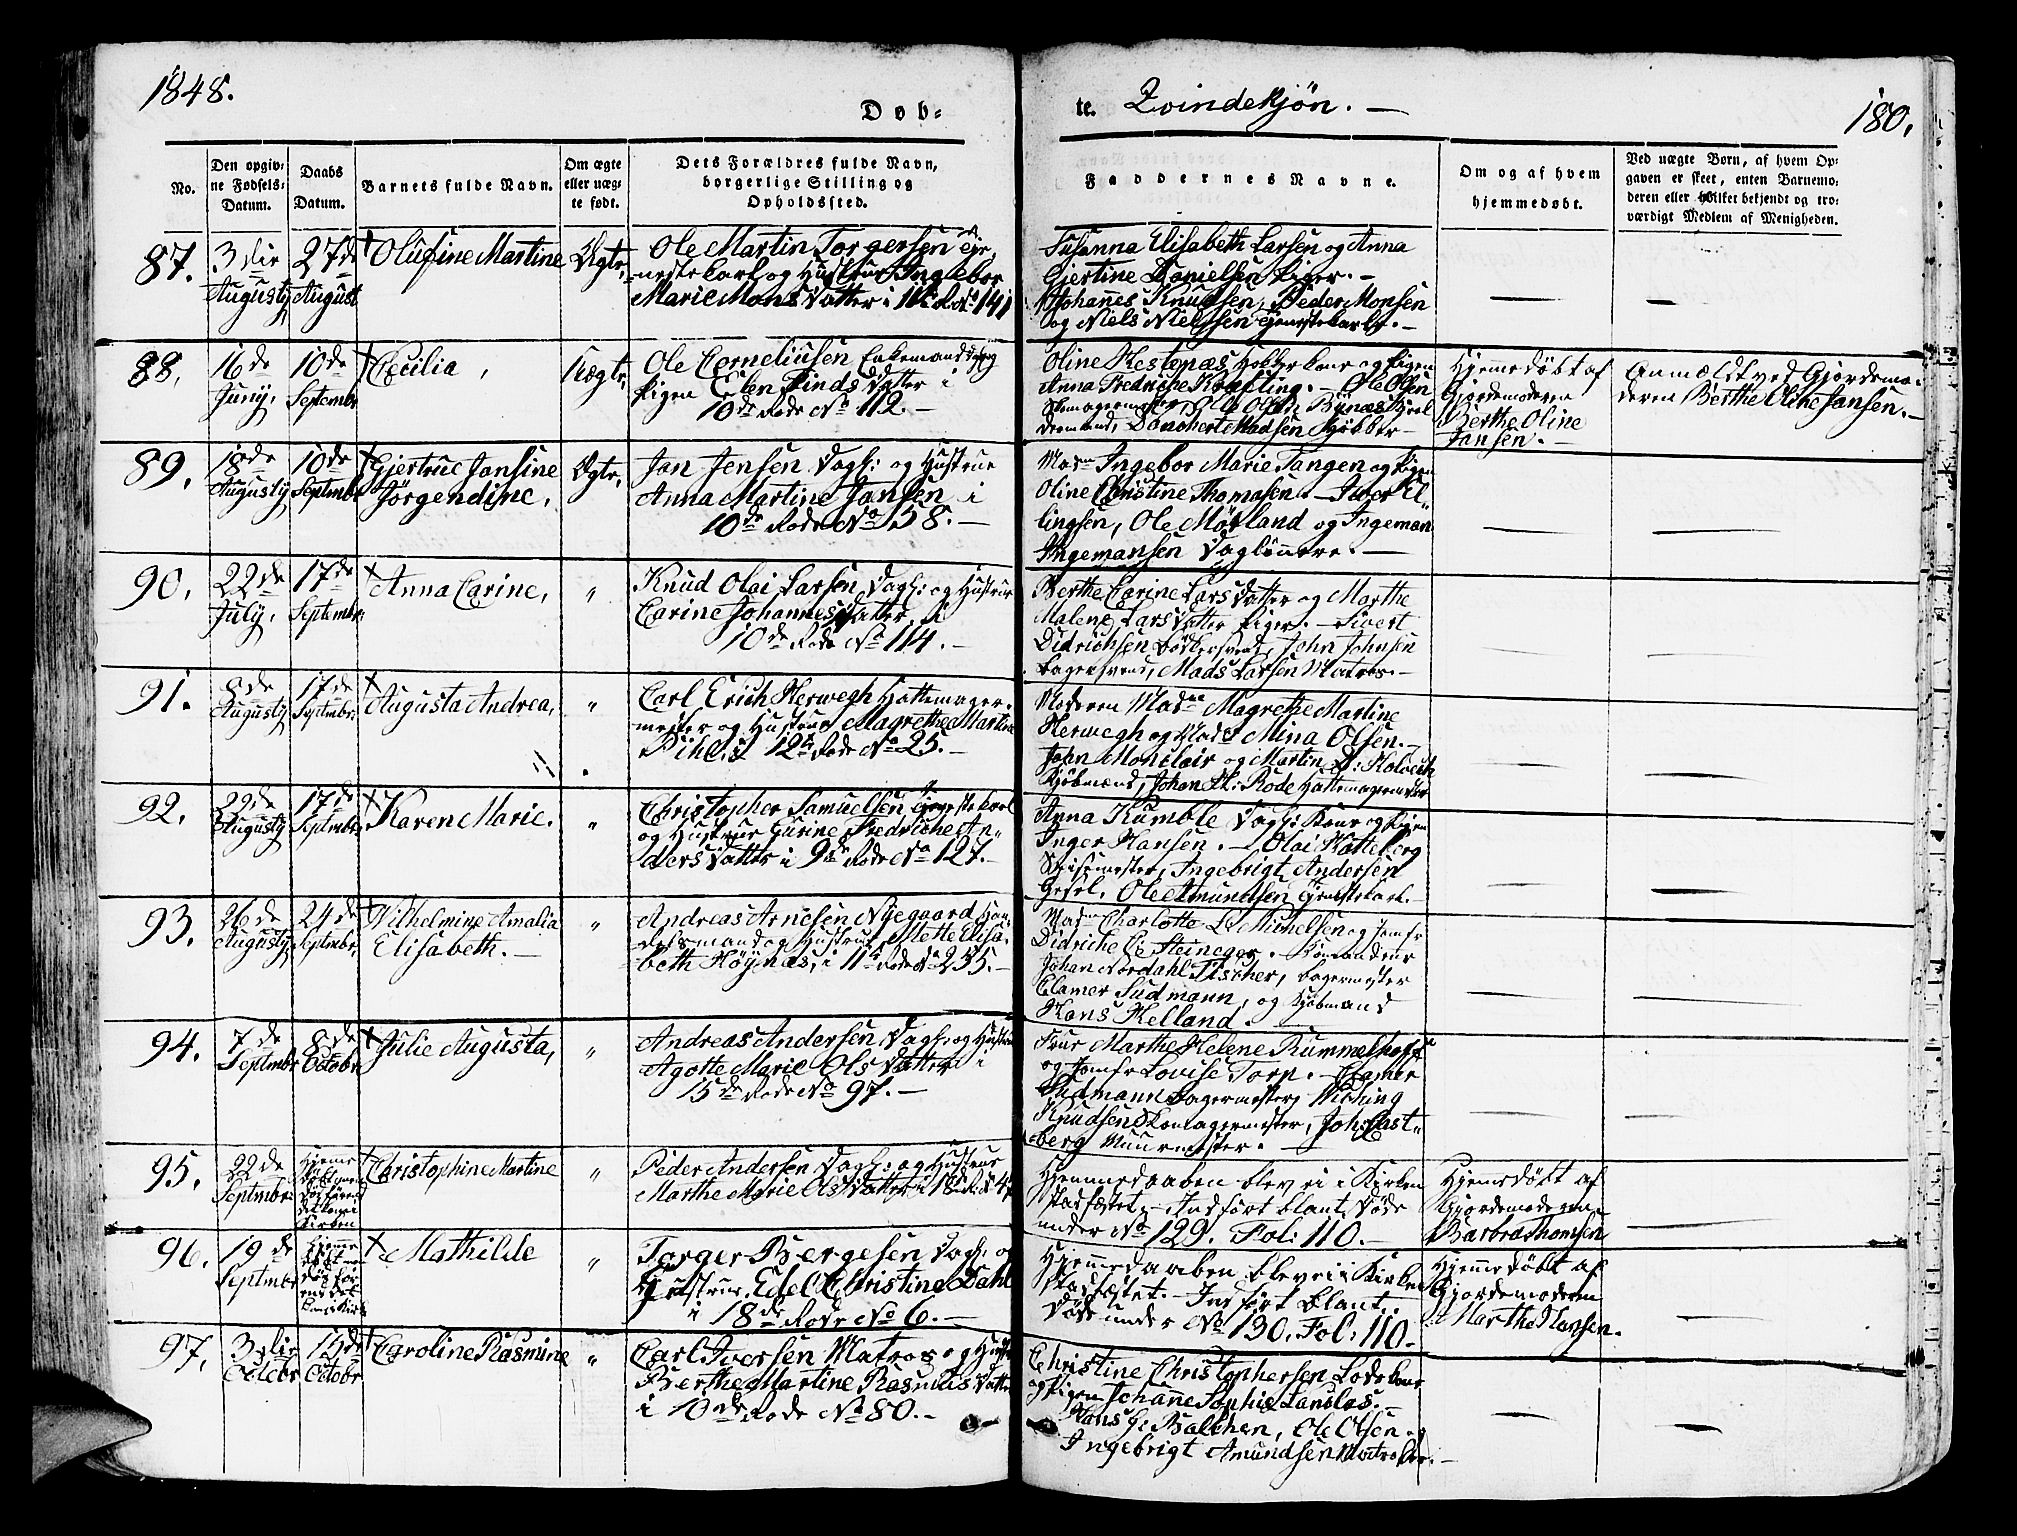 1848.
Døb-
te. Qvindekjøn. —
180.
No.
Den opgiv-
ne Fødsels-
Datum.
Daabs
Datum.
Barnets fulde Navn.
Om ægte
eller uæg-
te født.
Dets Forældres fulde Navn,
borgerlige Stilling og
Opholdssted.
Faddernes Navne.
Om og af hvem
hjemmedøbt.
Ved uægte Børn, af hvem Op-
gaven er skeet, enten Barnemo-
deren eller hvilket bekjendt og tro-
værdigt Medlem af Menigheden.
87. 3die Augusty 27de August Olufine Martine Ægte,
Ole Martin Torgersen Tje-
nestekarl og Hustrue Ingebor
Marie Monsdatter i 11te Rode 141
Susanna Elisabeth Larsen og Anna
Gjertine Danielsen Piger. —
Johanes Knudsen, Peder Monsen
og Niels Nielssen Tjenestekarle. —
88. 16de Juny, 10de Septembr Cecilia, Uægte,
Ole Corneliusen Enkemand og
Pigen Elen Findsdatter i
10de Rode No 112. —
Oline Hestenæs Kone og Pigen
Anna Fredriche — Ole Olsen
Danchert Madsen
Hjemedøbt af
Gjordemoderen
Berthe Oline
Jansen. —
Anmældt ved Gjordemo-
deren Berthe Oline Jansen. —
89. 18de Augusty 10de Septembr Gjertrue Jansine
Jørgendine, Ægte,
Jan Jensen Dagl: og Hustrue
Anna Martine Jansen i
10de Rode No 58. —
Madm Ingebor Marie Tangen og Pigen
Oline Christine Thomasen. — Iver El-
lingsen, Ole Mørland og Ingeman
Ingemansen Daglønnere. —
90. 22de July, 17de Septembr: Anna Carine, "
Knud Olai Larsen Dagl: og Hustrue
Carine Johannesdatter i
10de Rode No 114. —
Berthe Carine Larsdatter og Marthe
Malene Larsdatter Piger. — Sivert
Didrichsen Bødkersvend, John Johnsen
Bagersvend, Mads Larsen Matros. —
91. 8de Augusty 17de Septembr: Augusta Andrea, "
Carl Erich Herwegh Hattemager-
mester og Hustrue Magrethe Martine
Pihl i 12te Rode No 25. —
Moderen Madme Magrethe Martine
Herwegh og Mads Mina Olsen. —
John Monclair og Martin D: Holvech
Kjøbmænd, Johan H: Rode Hattemagersvend
92. 29de Augusty 17de Septembr: Karen Marie. "
Christopher Samuelsen Tjenestekarl
og Hustrue Gurine Fredriche An-
dersdatter i 9de Rode No 127. —
Anna Kumble Dagl: Kone og Pigen
Inger Hansen. — Olai Hatteberg
Spisemester, Ingebrigt Andersen
Gesel, Ole Amundsen Tjenestekarl. —
93. 26de Augusty 24de Septembr, Wilhelmine Amalia
Elisabeth. — "
Andreas Arnesen Nyegaard Han-
delsmand og Hustrue Mette Elisa-
beth Høynæs, i 11te Rode No 235. —
Madm Charlotte L Michelsen og Jomfr
Didriche C: Steineger.
Johan Nordahl Fischer, Bagermester
Clamer Sudmann, og Kjøbmand
Hans Helland.
94. 7de Septembr 8de Octobr Julie Augusta, "
Andreas Andersen Dagl: og Hustrue
Agotte Marie Olsdatter i
15de Rode No 97. —
Frue Marthe Helene Rummelhoff
og Jomfr Lovise Torp. — Clamer
Sudmann Bagermester,
Knudsen Skomagermester, Joh: Cast-
berg Muurmester.
95. 22de Septembr: Hjemmedøbt Christophine Martine "
Peder Andersen Dagl: og Hustrue
Marthe Marie Olsdatter i 18de R: No 47
Hjemmedaaben blev ei i Kirken
stadfæstet. — Indført blant Døde
under No 129. Fol: 110. —
Hjemedøbt af
Gjordemoderen
Barbra Thomsen
96. 19de Septembr Mathilde "
Torger Bergesen Dagl: og
Hustrue Edel Christine Dahl
i 18de Rode No 6. —
Hjemmedaaben blev ei i Kirken
stadfæstet. — Indført blant
Døde under No 130, Fol: 110. —
Hjemmedøbt af
Gjordemoderen
Marthe Hansen.
97. 3die Octobr 15de Octobr Caroline Rasmine "
Carl Iversen Matros og Hustr
Berthe Martine Rasmusdatter
i 10de Rode No 80. —
Christine Christophersen Lodskone
og Pigen Johanne Sophie Lanclas. —
Hans G: Balchen, Ole Olsen og
Ingebrigt Amundsen Matroser. —